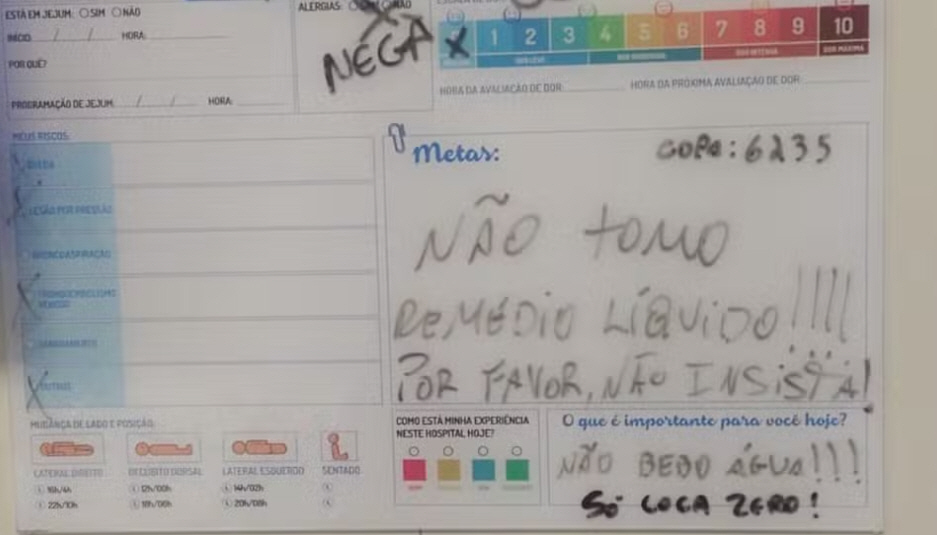 ESTÁ EM JEJUM: SIM NÃO
INÍCIO: / / HORA:
POR QUÊ?
PROGRAMAÇÃO DE JEJUM: / / HORA:
ALERGIAS: NÃO
NEGA
X 1 2 3 4 5 6 7 8 9 10
DOR LEVE DOR MODERADA DOR INTENSA DOR MÁXIMA
HORA DA AVALIAÇÃO DE DOR: HORA DA PRÓXIMA AVALIAÇÃO DE DOR:
MEUS RISCOS:
X QUEDA
X LESÃO POR PRESSÃO
BRONCOASPIRAÇÃO
X TROMBOEMBOLISMO
VENOSO
SANGRAMENTO
X OUTROS
Metas:
COPA: 6235
NÃO TOMO
REMÉDIO LÍQUIDO!!!!
POR FAVOR, NÃO INSISTA!
MUDANÇA DE LADO E POSIÇÃO:
LATERAL DIREITO DECÚBITO DORSAL LATERAL ESQUERDO SENTADO
16h/4h 12h/00h 14h/02h
22h/10h 18h/06h 20h/08h
COMO ESTÁ MINHA EXPERIÊNCIA
NESTE HOSPITAL HOJE?
O que é importante para você hoje?
NÃO BEBO ÁGUA!!!
SÓ COCA ZERO!